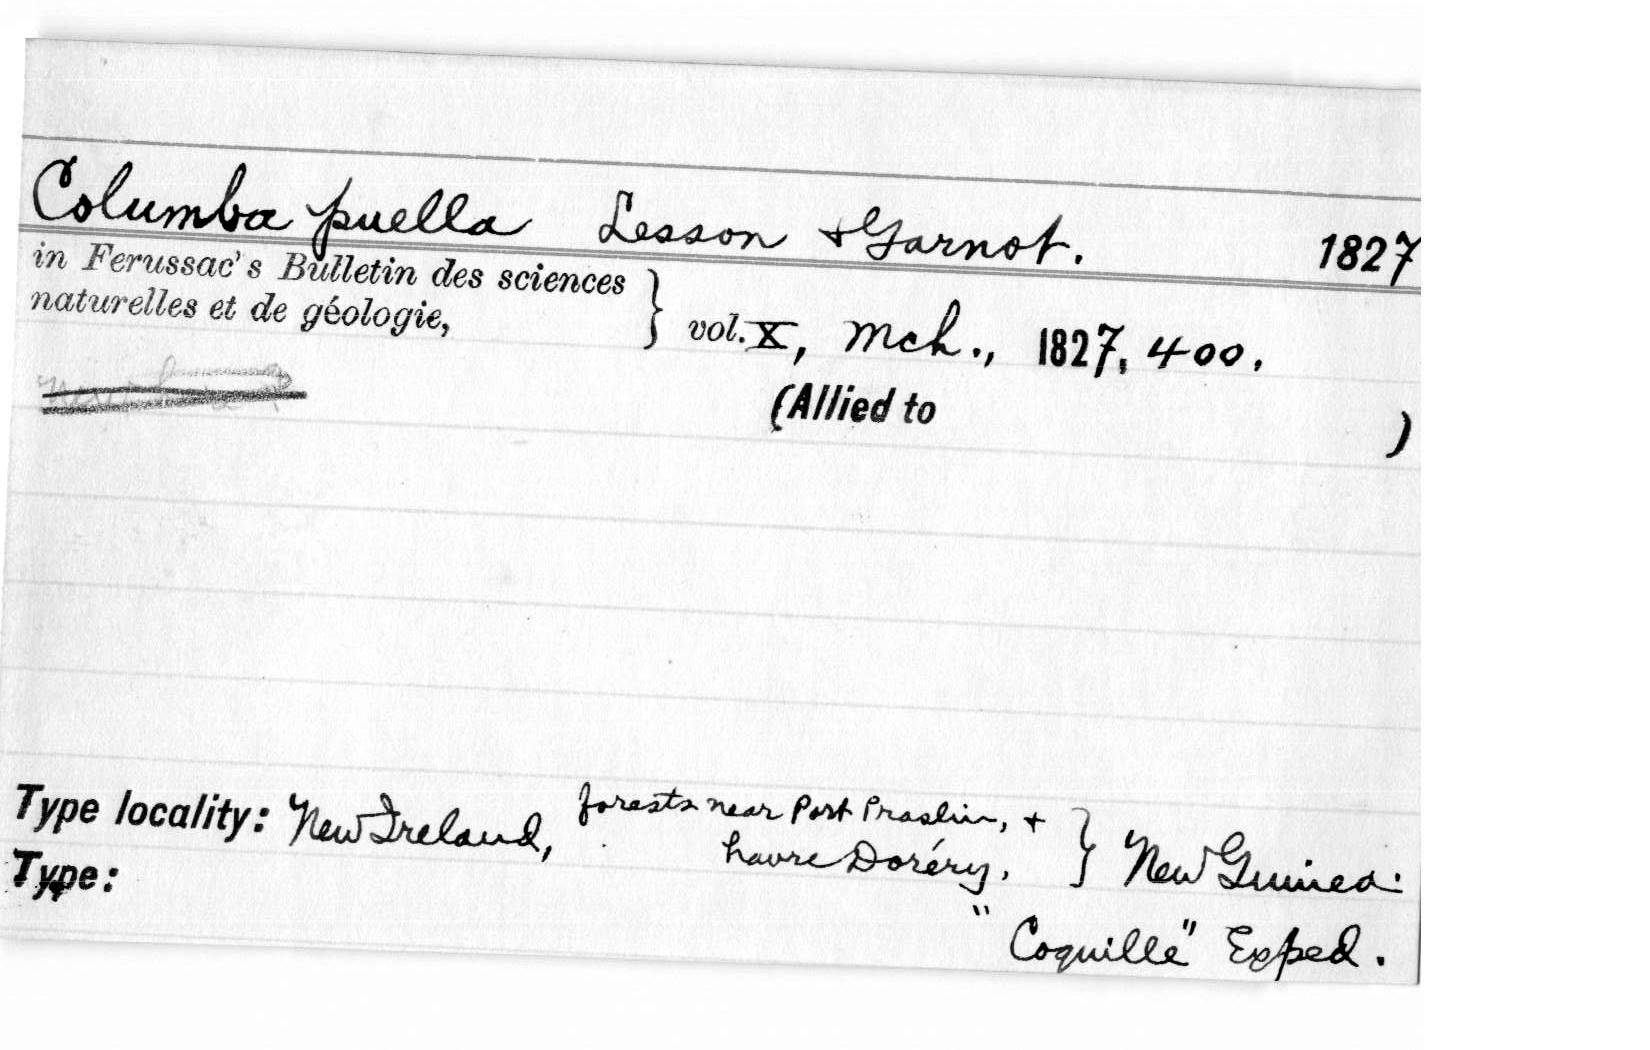 Columba puella Lesson & Garnot. 1827
in Ferussac's Bulletin des sciences
naturelles et de géologie, } vol. X, Mch., 1827, 400.
(Allied to )
Type locality: New Ireland, forests near Port Praslin, +
havre Doréry. } New Guinea.
Type:
"Coquille" Exped.